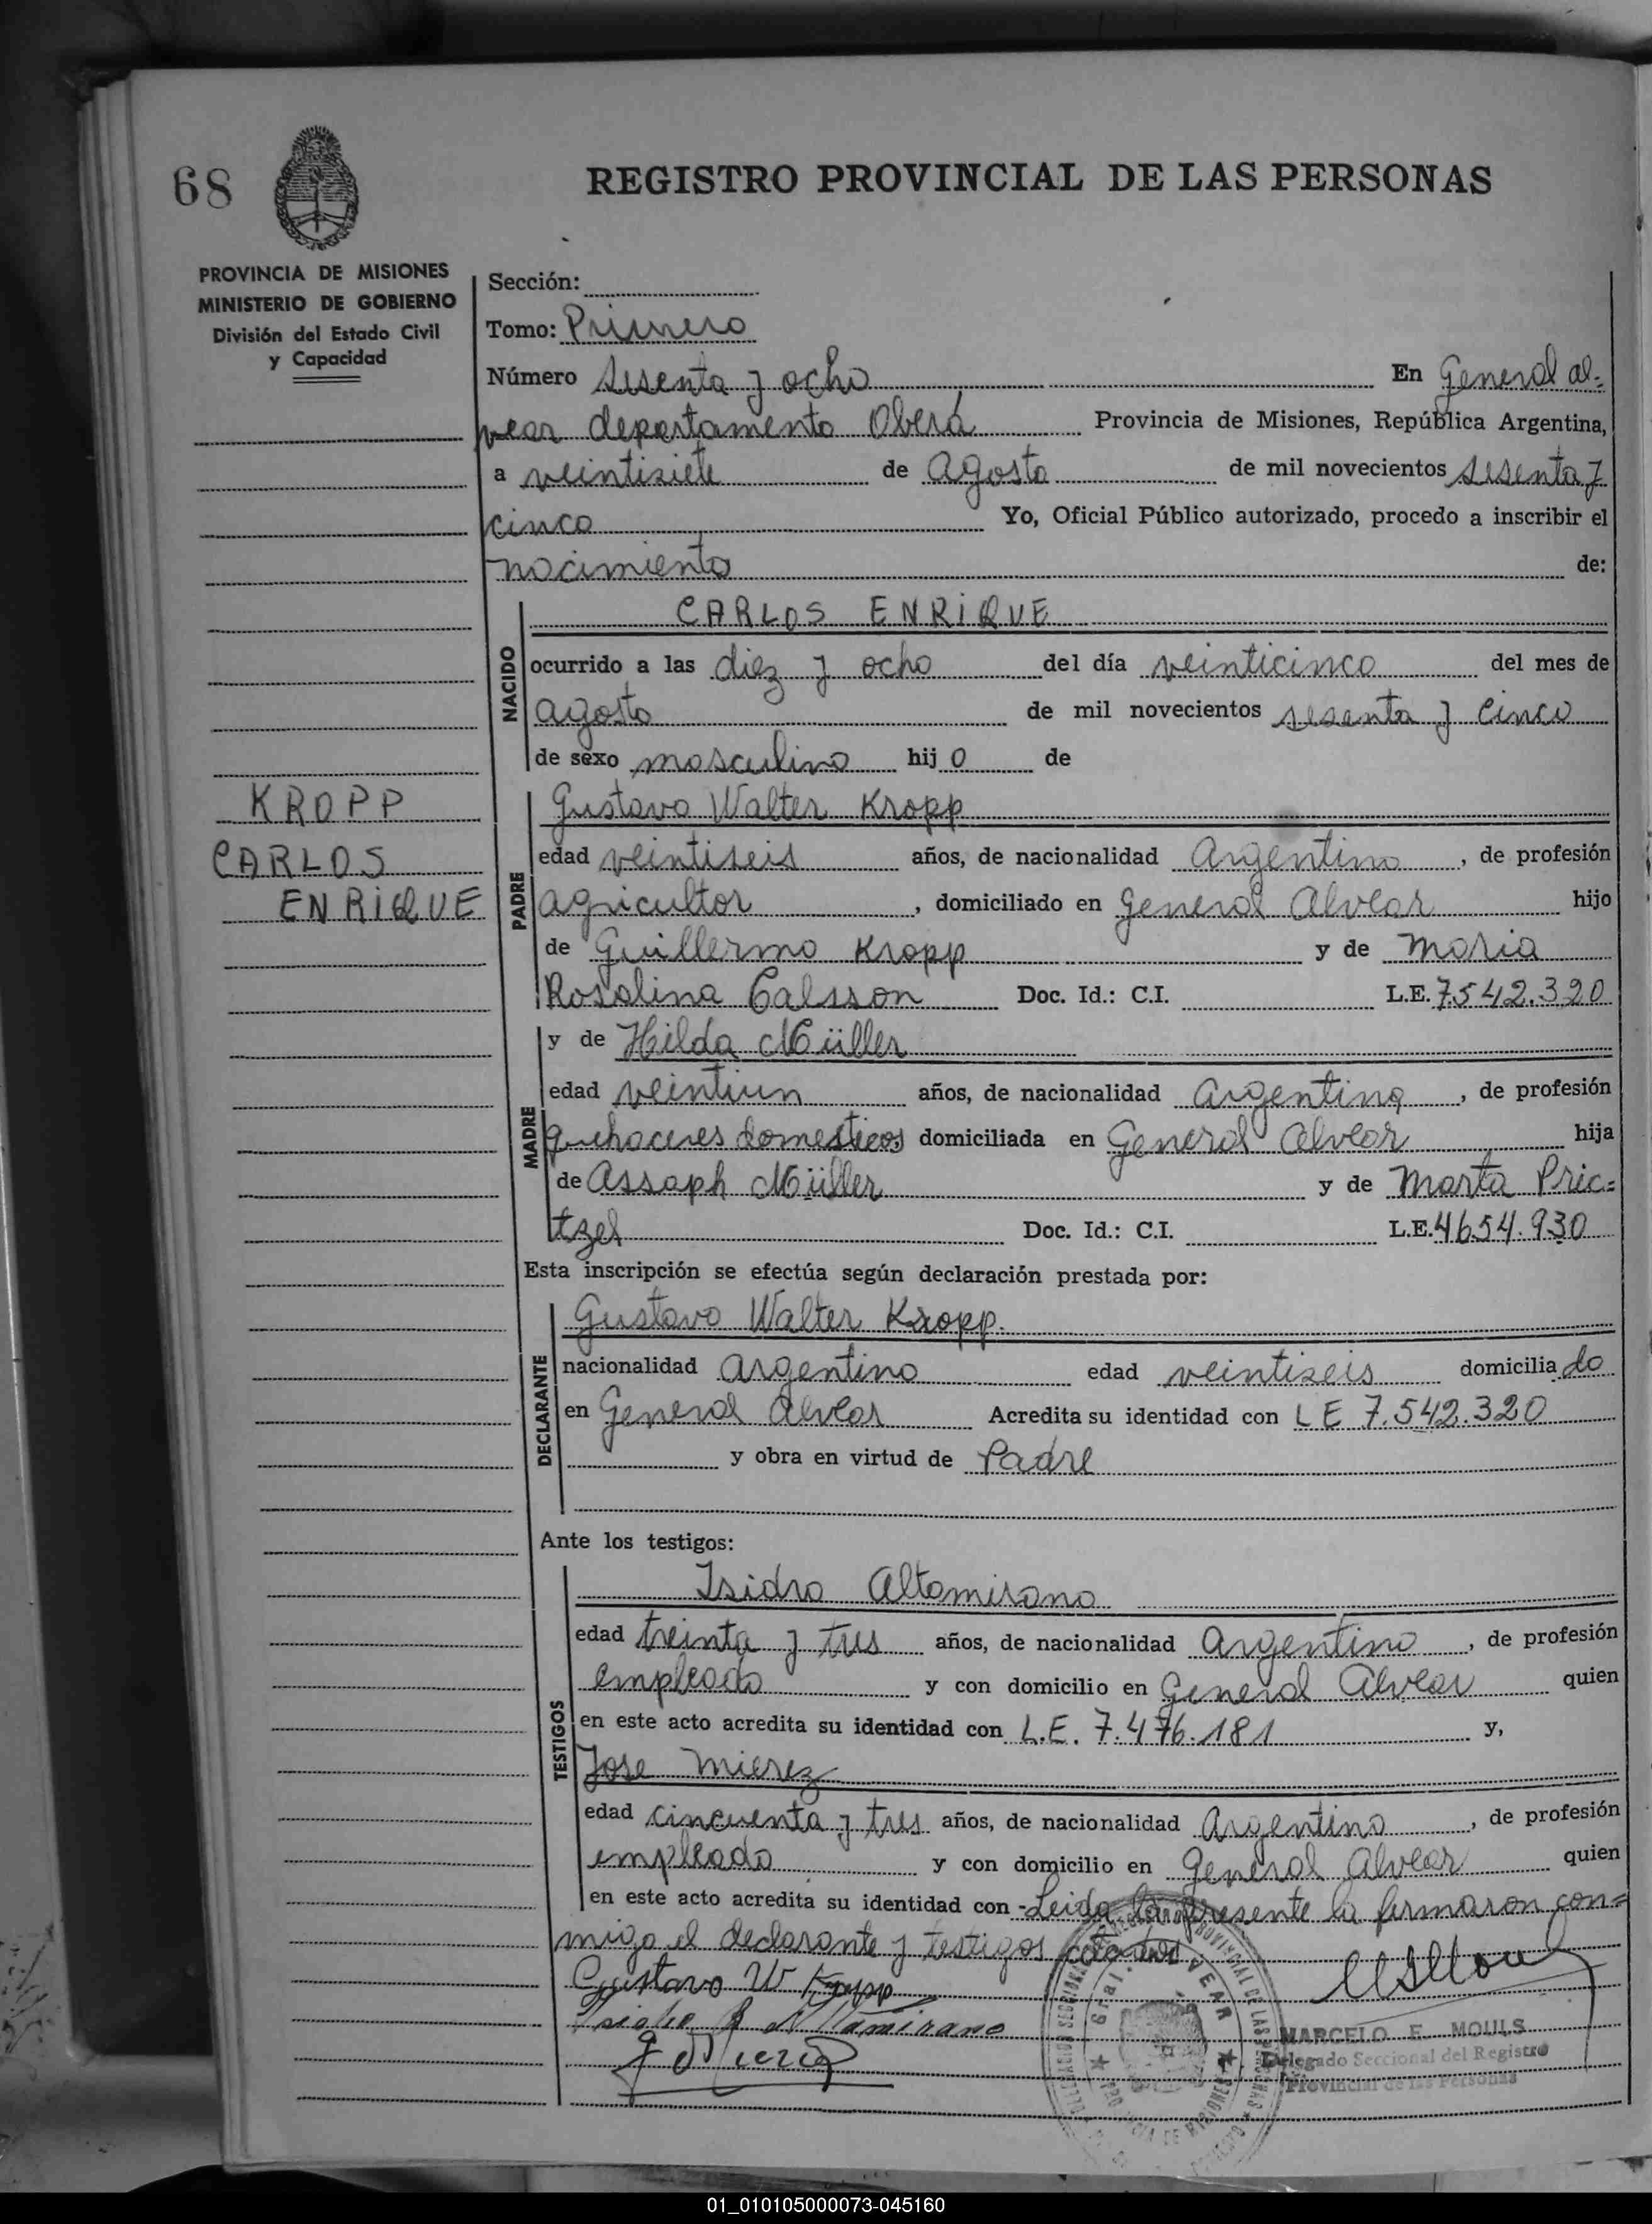 68
REGISTRO PROVINCIAL DE LAS PERSONAS
PROVINCIA DE MISIONES
MINISTERIO DE GOBIERNO
División del Estado Civil
y Capacidad
Sección:
Tomo: Primero
Número sesenta y ocho En General al-
vear departamento Oberá Provincia de Misiones, República Argentina,
a veintisiete de agosto de mil novecientos sesenta y
cinco Yo, Oficial Público autorizado, procedo a inscribir el
nacimiento de:
CARLOS ENRIQUE
NACIDO
ocurrido a las diez y ocho del día veinticinco del mes de
agosto de mil novecientos sesenta y cinco
de sexo masculino hijo de
KROPP
CARLOS
ENRIQUE
PADRE
Gustavo Walter Kropp
edad veintiseis años, de nacionalidad Argentino, de profesión
agricultor, domiciliado en General Alvear hijo
de Guillermo Kropp y de Maria
Rosalina Calsson Doc. Id.: C.I. L.E. 7.542.320
MADRE
y de Hilda Müller
edad veintiun años, de nacionalidad Argentina, de profesión
quehaceres domesticos domiciliada en General Alvear hija
de Assaph Müller y de Marta Pric-
tzel Doc. Id.: C.I. L.E. 4654.930
Esta inscripción se efectúa según declaración prestada por:
DECLARANTE
Gustavo Walter Kropp.
nacionalidad argentino edad veintiseis domiciliado
en General Alvear Acredita su identidad con L E 7.542.320
y obra en virtud de Padre
Ante los testigos:
TESTIGOS
Isidro Altamirano
edad treinta y tres años, de nacionalidad Argentino, de profesión
empleado y con domicilio en General Alvear quien
en este acto acredita su identidad con L.E. 7.476.181 y,
Jose Mierez
edad cincuenta y tres años, de nacionalidad Argentino, de profesión
empleado y con domicilio en General Alvear quien
en este acto acredita su identidad con -Leida la presente la firmaron con-
migo el declarante y testigos
Gustavo W Kropp
Altamirano
MARCELO E. MOULS
Delegado Seccional del Registro
Provincial de las Personas
Gral. ALVEAR
01_010105000073-045160